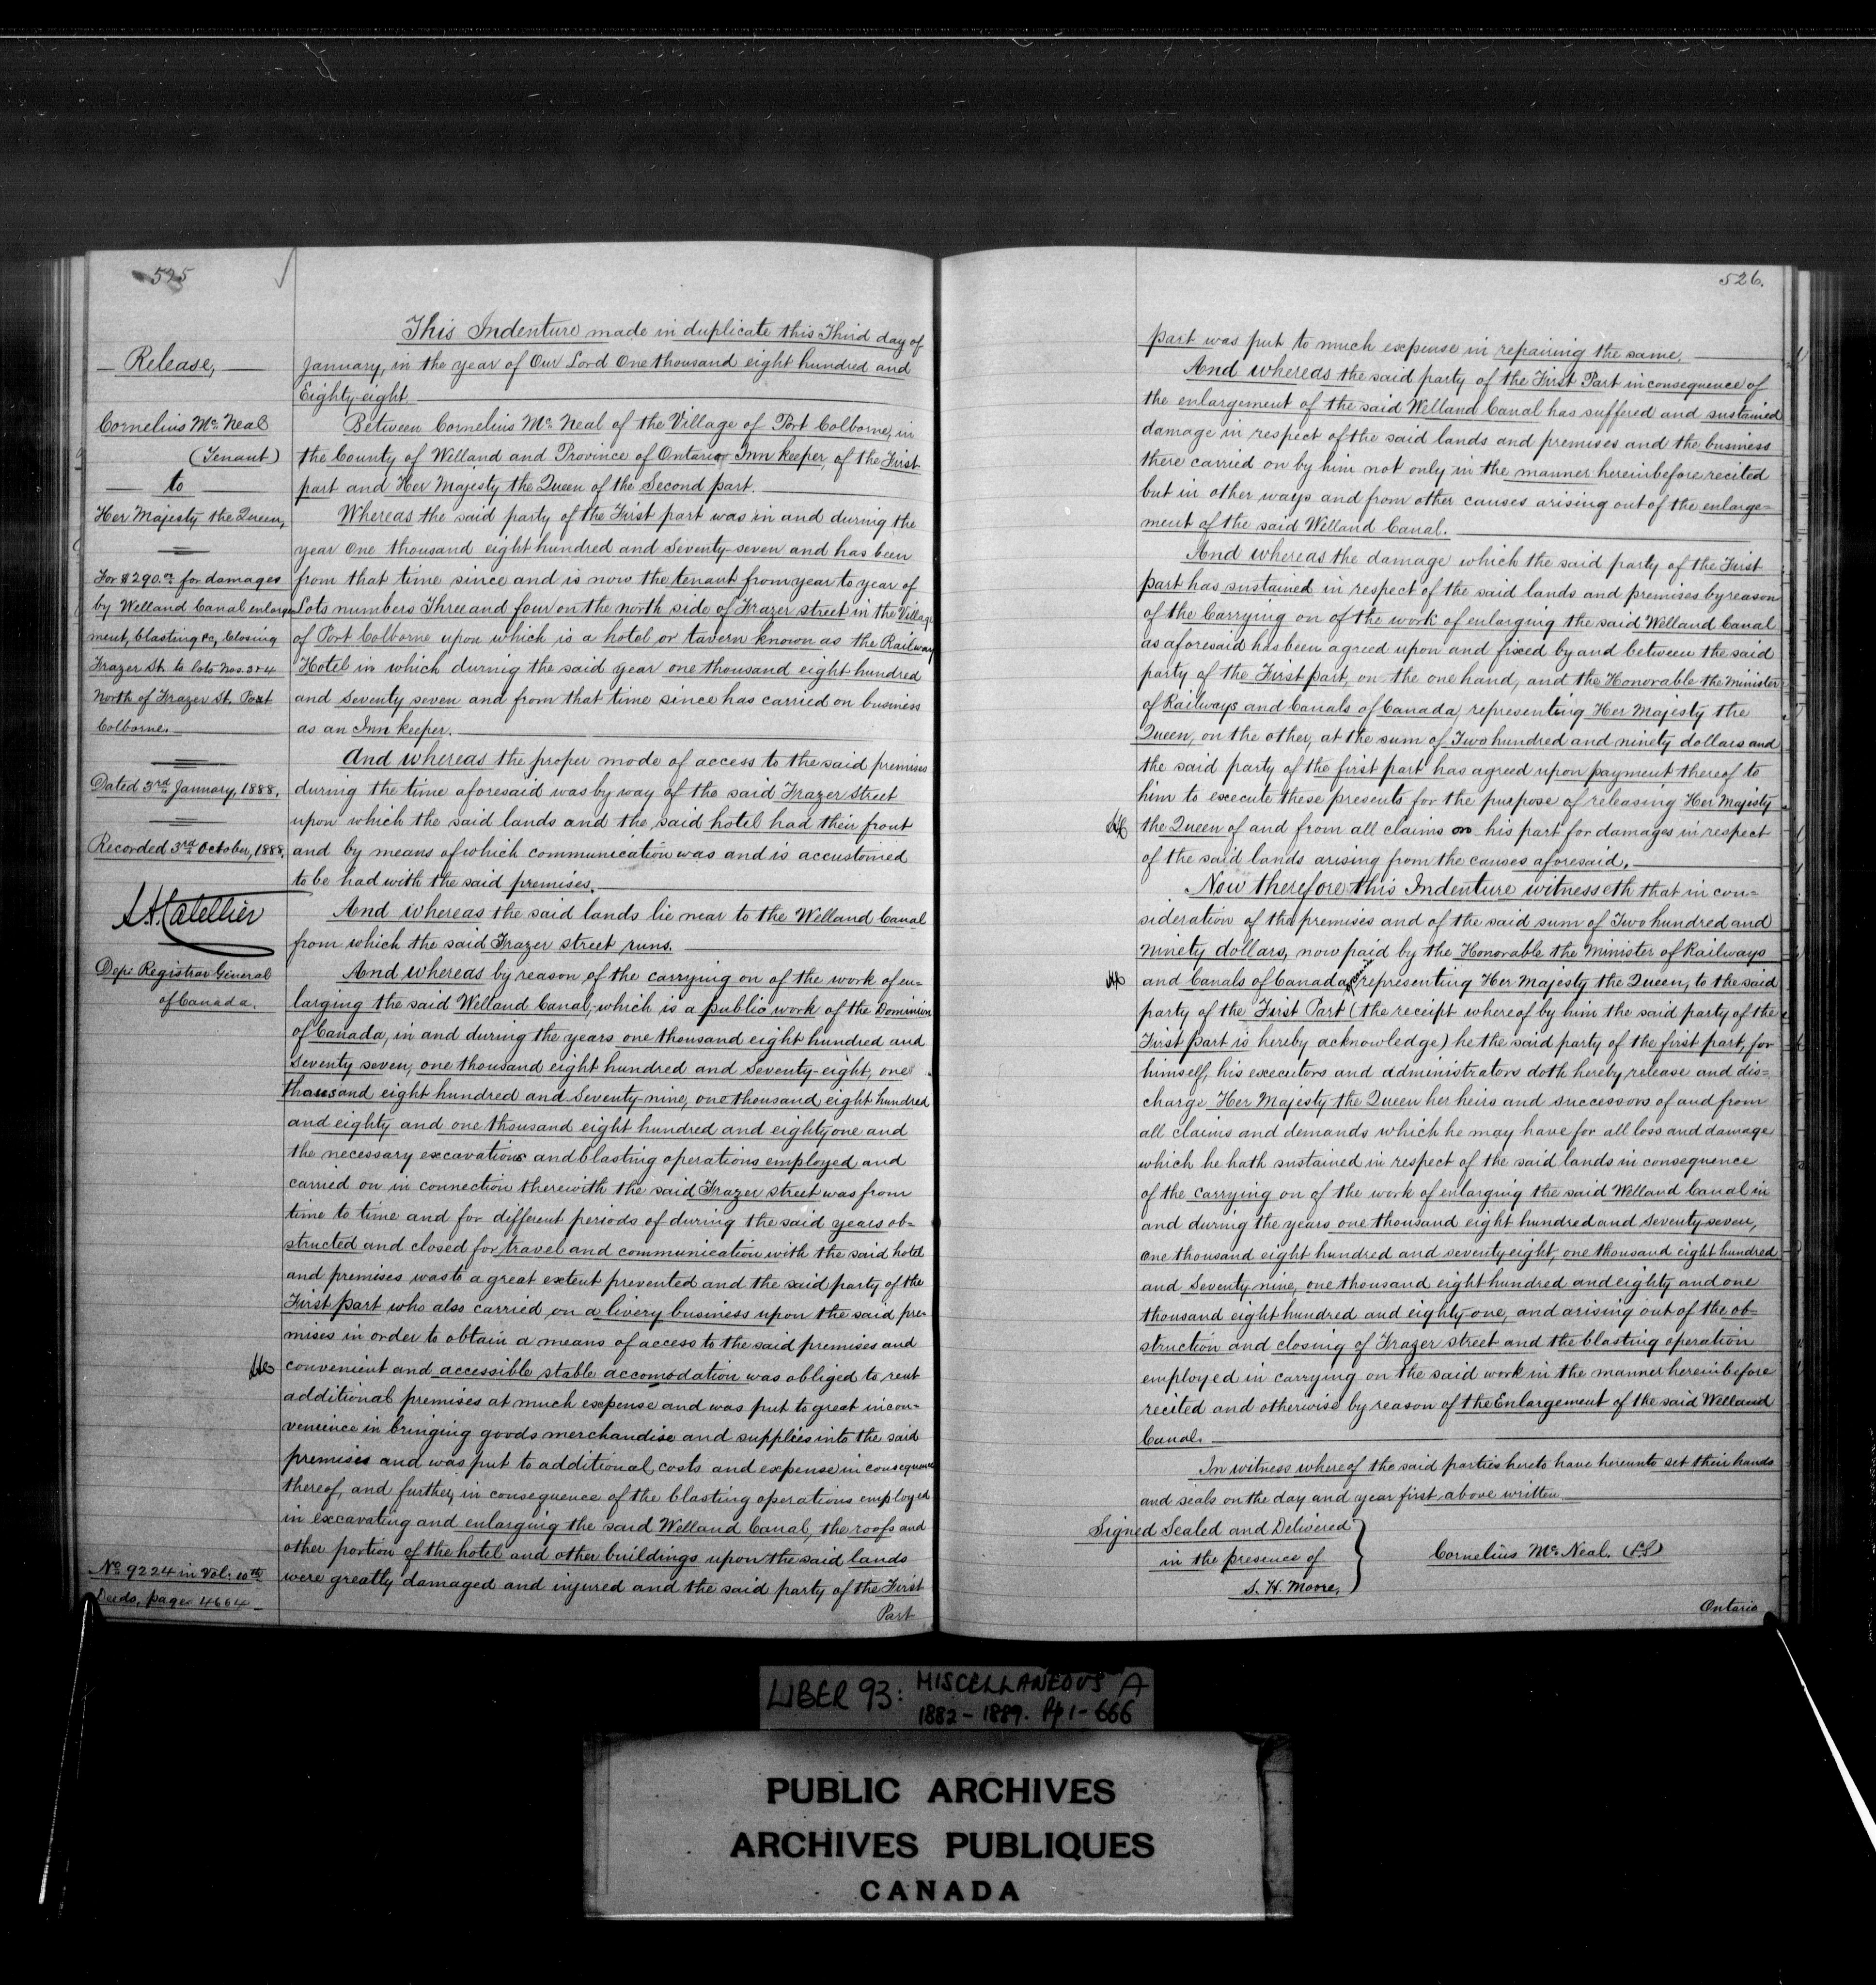 525
Release,
Cornelius Mc Neal
(Tenant)
to
Her Majesty the Queen,
For $290.00 for damages
by Welland Canal enlarge
ment, blasting &c, closing
Frazer St. to lots Nos. 3 & 4
North of Frazer St. Port
Colborne.
Dated 3rd January, 1888.
Recorded 3rd October, 1888.
L. A. Catellier
Dep: Registrar General
of Canada.
No 9224 in Vol: 10th
Deeds, page 4664
This Indenture made in duplicate this Third day of
January, in the year of Our Lord One thousand eight hundred and
Eighty-eight
Between Cornelius Mc Neal of the Village of Port Colborne, in
the County of Welland and Province of Ontario Inn keeper, of the First
part and Her Majesty the Queen of the Second part.
Whereas the said party of the First part was in and during the
year One thousand eight hundred and Seventy-seven and has been
from that time since and is now the tenant from year to year of
Lots numbers Three and four on the north side of Frazer street in the Village
of Port Colborne upon which is a hotel or tavern known as the Railway
Hotel in which during the said year one thousand eight hundred
and Seventy seven and from that time since has carried on business
as an Inn keeper.
And whereas the proper mode of access to the said premises
during the time aforesaid was by way of the said Frazer Street
upon which the said lands and the said hotel had their front
and by means of which communication was and is accustomed
to be had with the said premises.
And whereas the said lands lie near to the Welland Canal
from which the said Frazer street runs.
And whereas by reason of the carrying on of the work of en-
larging the said Welland Canal, which is a public work of the Dominion
of Canada, in and during the years one thousand eight hundred and
Seventy seven, one thousand eight hundred and Seventy-eight, one
thousand eight hundred and Seventy-nine, one thousand eight hundred
and eighty and one thousand eight hundred and eighty one and
the necessary excavations and blasting operations employed and
carried on in connection therewith the said Frazer street was from
time to time and for different periods of during the said years ob-
structed and closed for travel and communication with the said hotel
and premises was to a great extent prevented and the said party of the
First part who also carried on a livery business upon the said pre-
mises in order to obtain a means of access to the said premises and
convenient and accessible stable accomodation was obliged to rent
additional premises at much expense and was put to great incon-
venience in bringing goods merchandise and supplies into the said
premises and was put to additional costs and expense in consequence
thereof, and further, in consequence of the blasting operations employed
in excavating and enlarging the said Welland Canal, the roofs and
other portion of the hotel and other buildings upon the said lands
were greatly damaged and injured and the said party of the First
Part
526.
part was put to much expense in repairing the same.
And whereas the said party of the First Part in consequence of
the enlargement of the said Welland Canal has suffered and sustained
damage in respect of the said lands and premises and the business
there carried on by him not only in the manner hereinbefore recited
but in other ways and from other causes arising out of the enlarge-
ment of the said Welland Canal.
And whereas the damage which the said party of the First
part has sustained in respect of the said lands and premises by reason
of the Carrying on of the work of enlarging the said Welland Canal
as aforesaid has been agreed upon and fixed by and between the said
party of the First part, on the one hand, and the Honorable the Minister
of Railways and Canals of Canada, representing Her Majesty the
Queen, on the other, at the sum of Two hundred and ninety dollars and
the said party of the first part has agreed upon payment thereof to
him to execute these presents for the purpose of releasing Her Majesty
the Queen of and from all claims on his part for damages in respect
of the said lands arising from the causes aforesaid.
Now therefore this Indenture witnesseth that in con-
sideration of the premises and of the said sum of Two hundred and
ninety dollars, now paid by the Honorable the Minister of Railways
and Canals of Canada, representing Her Majesty the Queen, to the said
party of the First Part (the receipt whereof by him the said party of the
First part is hereby acknowledge) he the said party of the first part, for
himself, his executors and administrators doth hereby release and dis-
charge Her Majesty the Queen her heirs and successors of and from
all claims and demands which he may have for all loss and damage
which he hath sustained in respect of the said lands in consequence
of the carrying on of the work of enlarging the said Welland Canal in
and during the years one thousand eight hundred and seventy seven,
one thousand eight hundred and seventy eight, one thousand eight hundred
and Seventy nine, one thousand eight hundred and eighty and one
thousand eight hundred and eighty-one, and arising out of the ob-
struction and closing of Frazer street and the blasting operation
employed in carrying on the said work in the manner hereinbefore
recited and otherwise by reason of the Enlargement of the said Welland
Canal.
In witness whereof the said parties hereto have hereunto set their hands
and seals on the day and year first above written
Signed Sealed and Delivered
in the presence of
S. H. Moore,
Cornelius Mc Neal. (LS)
Ontario
LIBER 93: MISCELLANEOUS A
1882-1889. Pp 1-666
PUBLIC ARCHIVES
ARCHIVES PUBLIQUES
CANADA